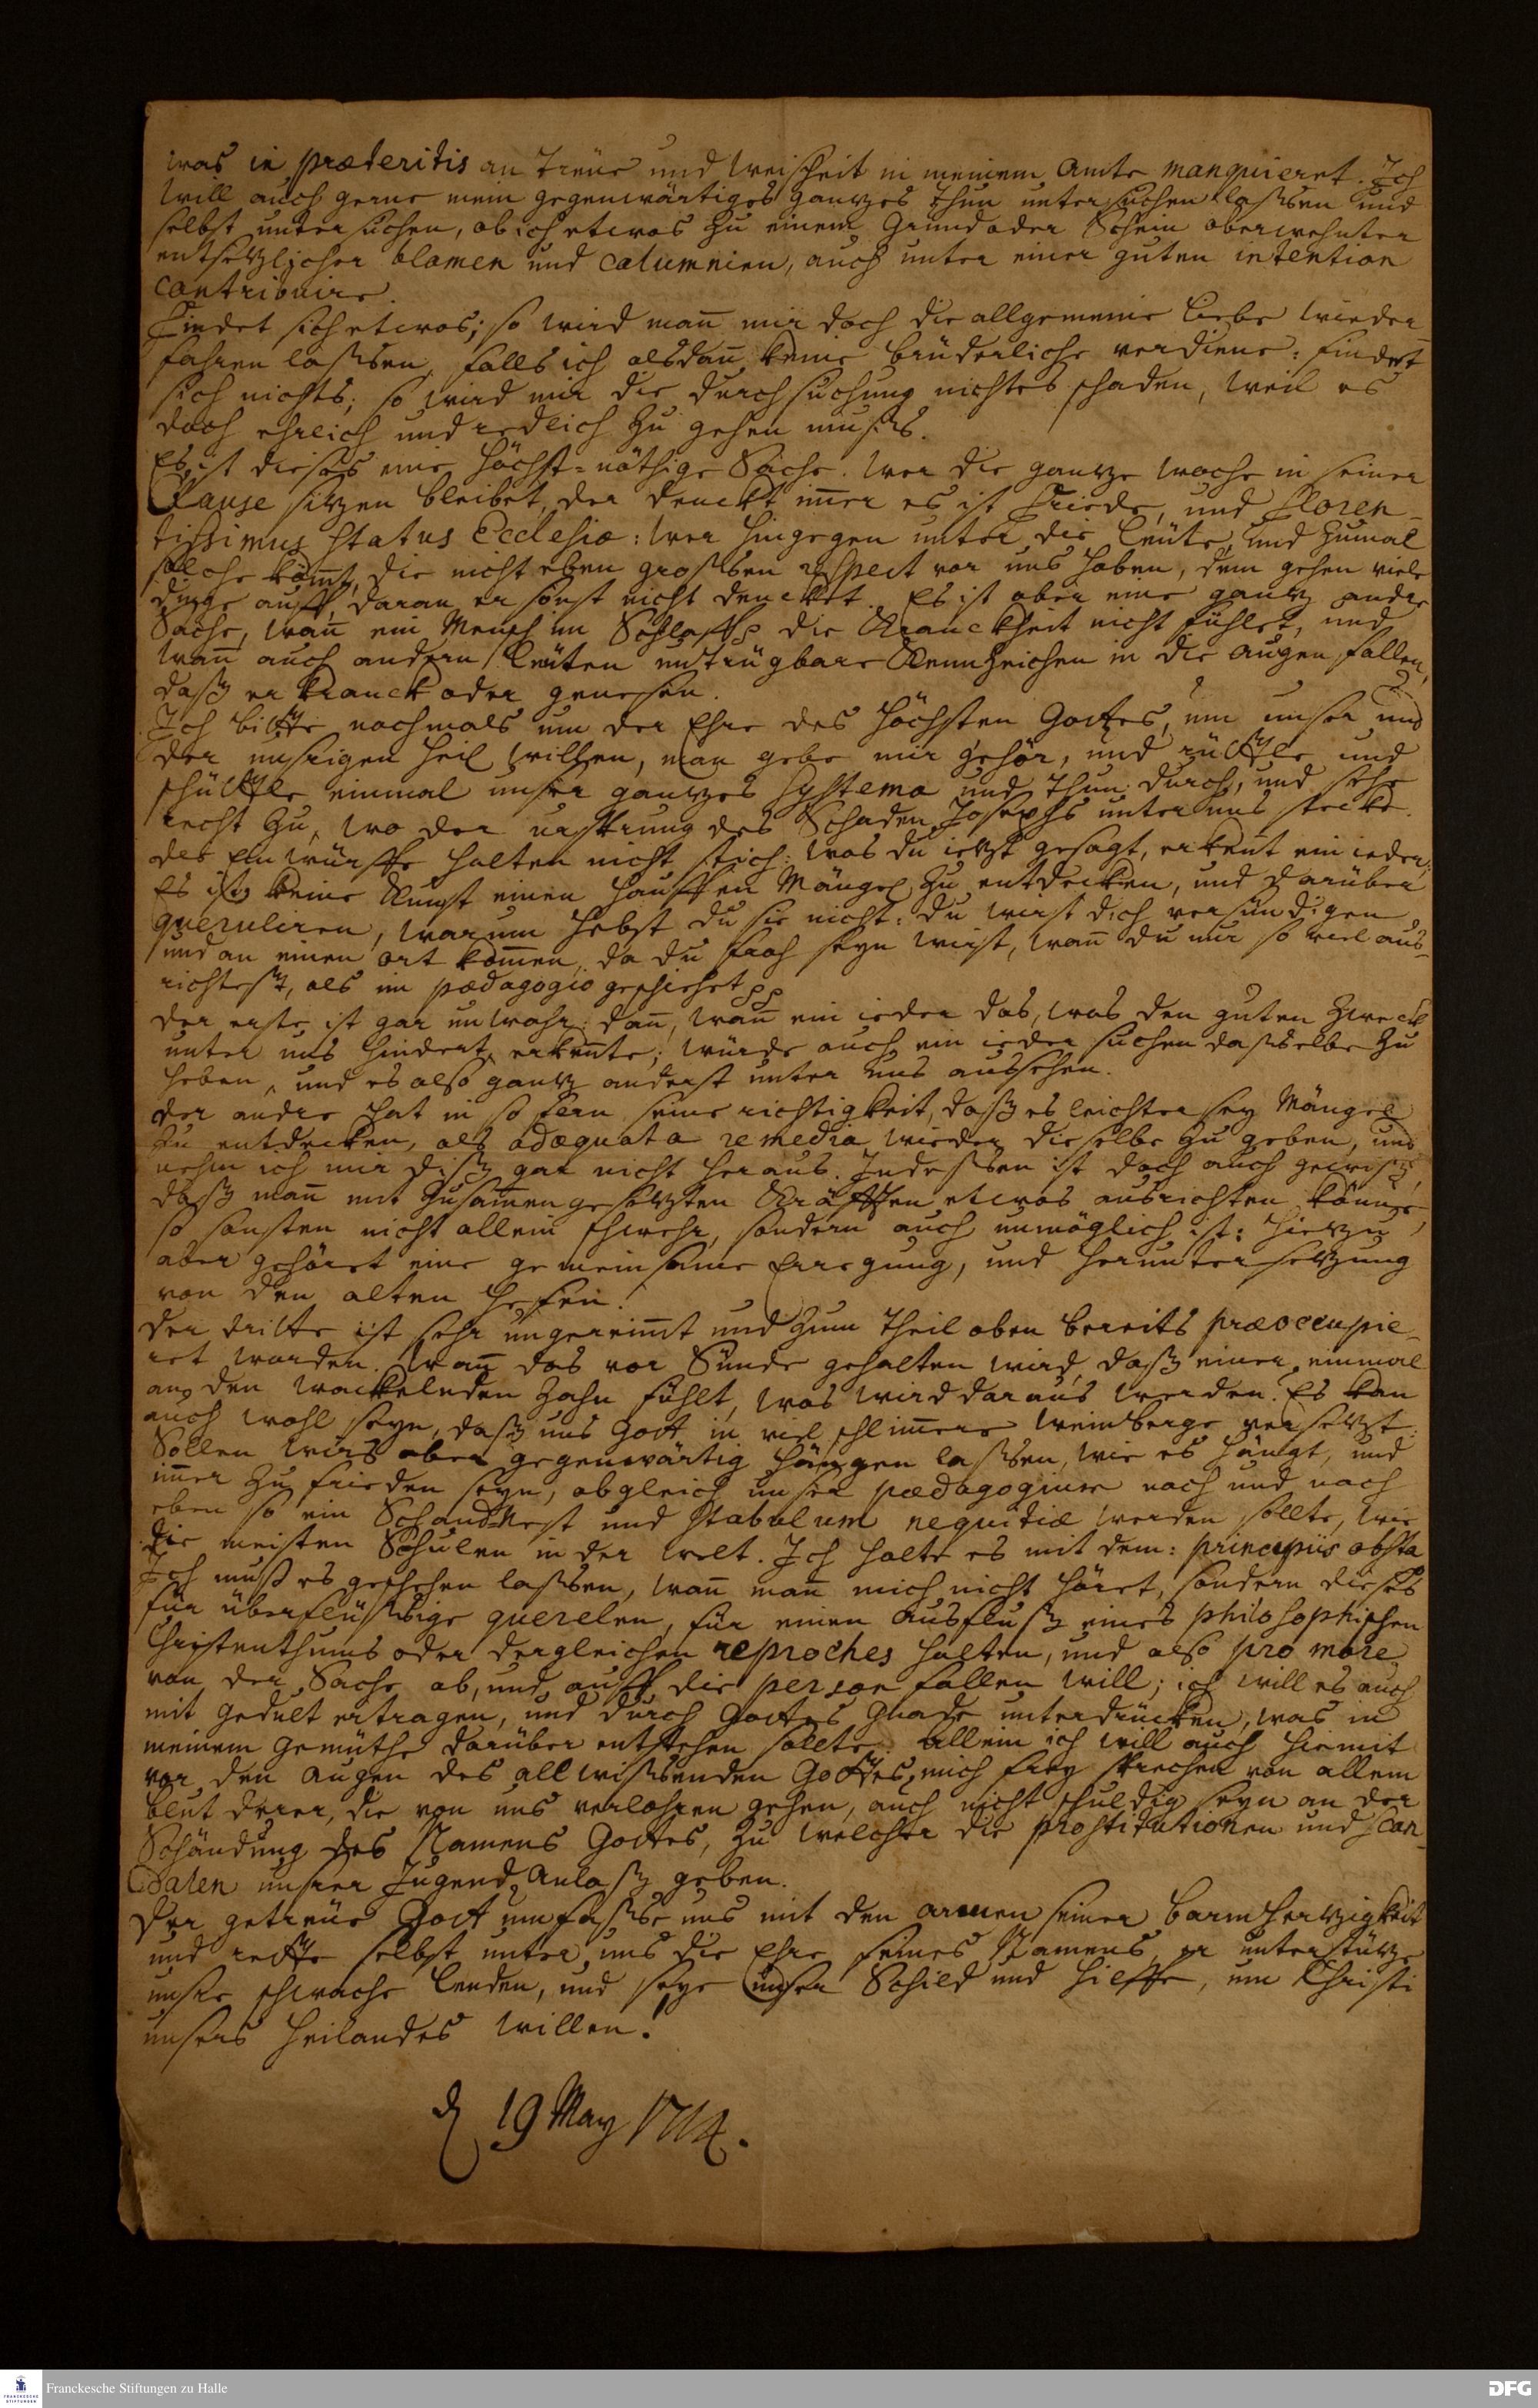 was in præteritis an Treüe und Weißheit in meinem Amte manquieret. Ich
will auch gerne mein gegenwärtiges gantzes Thun untersuchen laßen und
selbst untersuchen, ob ich etwas zu einem Grund oder Schein oberwehnter
entsetzlicher blamen und calumnien, auch unter einer guten intention
contribuire.
Findet sich etwas; so wird mañ mir doch die allgemeine Liebe wieder-
fahren laßen, falls ich alsdañ keine brüderliche verdiene: findet
sich nichts; so wird mir die Durchsuchung nichts schaden, weil es
doch ehrlich und redlich zu gehen muß.
Es ist dieses eine höchst-nöthige Sache. Wer die gantze Woche in seiner
Clause sitzen bleibet, der denckt im̄er es ist Friede, und floren-
tissimus status Ecclesiæ: wer hingegen unter die Leüte, und zumal
solche kom̄t, die nicht eben großen respect vor uns haben, dem gehen viele
dinge auff, daran er sonst nicht dencket. Es ist aber eine gantz andre
Sache, wañ ein Mensch im Schlaffe die Kranckheit nicht fühlet, und
wañ auch andern Leüten untrügbare Kennzeichen in die Augen fallen,
daß er kranck oder genesen.
Ich bitte nochmals um der Ehre des Höchsten Gottes, um unser und
der unsrigen Heil willen, man gebe mir gehör, und rüttle und
schüttle einmal unser gantzes Systema und Thun durch, und sehe
recht zu, wo der ursprung des Schaden Josephs unter uns stecke.
die Einwürffe halten nicht stich: was du ietzt gesagt, erkeñt ein ieder;
Es ist keine Kunst einen hauffen Mängel zu entdecken, und darüber
queruliren, warum hebst du sie nicht: du wirst dich versündigen
und an einen ort kom̄en, da du froh seyn wirst, wañ du nur so viel aus-
richtest, als im pædagogio geschiehet pp
der erste ist gar unwahr: dañ, wañ ein ieder das, was den guten Zweck
unter uns hindert, erkeñte; würde auch ein ieder suchen daßelbe zu
heben, und es also gantz anderst unter uns aussehen.
der andre hat in so fern seine richtigkeit, daß es leichter sey Mängel
zu entdecken, als adæquata remedia wieder dieselbe zu geben, und
nehm ich mir diß gar nicht heraus. Indeßen ist doch auch gewiß,
daß mañ mit zusam̄engesetzten Kräfften etwas ausrichten könne,
so sonsten nicht allein schwehr, sondern auch unmöglich ist: hiezu
aber gehöret eine gemeinsame Erregung, und heruntersetzung
von den alten Hefen.
der dritte ist sehr ungereim̄t und zum Theil oben bereits præoccupie-
ret worden. Wañ das vor Sünde gehalten wird, daß einer einmal
an den wackelnden Zahn fühlt, was wird daraus werden. Es kan
auch wohl seyn, daß uns Gott in viel schlim̄ere Weinberge versetzt.
Sollen wirs aber gegenwärtig hängen laßen, wie es hängt, und
im̄er zu frieden seyn, obgleich unser pædagogium nach und nach
eben so ein Schandnest und stabulum nequitiæ werden sollte, wie
die meisten Schulen in der Welt. Ich halte es mit dem: principiis obsta
Ich muß es geschehen laßen, wañ mañ mich nicht höret, sondern dieses
für überflüßige querelen, für einen Ausfluß eines philosophischen
Christenthums oder dergleichen reproches halten, und also pro more
von der Sache ab, und auff die person fallen will; ich will es auch
mit Gedult ertragen, und durch Gottes Gnade unterdrücken, was in
meinem Gemüthe darüber entstehen sollte. Allein ich will auch hiemit
vor den Augen des allwißenden Gottes, mich frey sprechen von allem
blut derer, die von uns verlohren gehen, auch nicht schuldig seyn an der
Schändung des Namens Gottes, zu welcher die prostitutionen und scan-
dalen unsrer Jugend Anlaß geben.
Der getreüe Gott umfaße uns mit den armen seiner Barmhertzigkeit
und rette selbst unter uns die Ehre seines Namens, er unterstütze
unsre schwache Lenden, und seye unser Schild und Hilffe, um Christi
unsers Heilandes willen.
d 19 May 1714.
Franckesche Stiftungen zu Halle
DFG